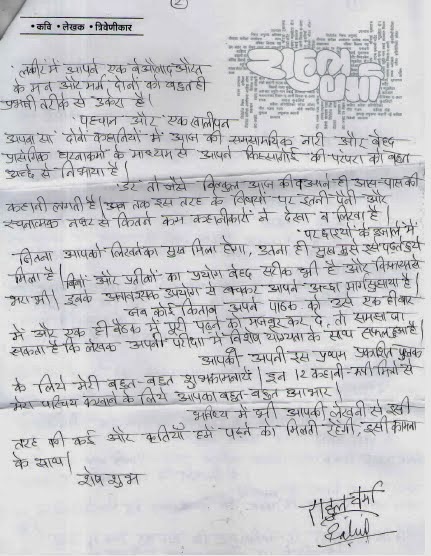 2
• कवि • लेखक • त्रिवेणीकार
राहुल वर्मा
लकीरें में आपने एक बेऔलाद औरत
के मन और मर्म, दोनों को बहुत ही
प्रभावी तरीके से उकेरा है।
पहचान और एक खालीपन
आपकी इन दोनों कहानियों में आज की समसामयिक नारी और बेहद
प्रासंगिक घटनाक्रमों के माध्यम से आपने किस्सागोई की परंपरा को बहुत
अच्छे से निभाया है।
डर तो जैसे बिल्कुल आज की व अपने ही आस-पास की
कहानी लगती है। अब तक इस तरह के विषयों पर इतनी पैनी और
रचनात्मक नज़र से कितने कम कहानीकारों ने देखा व लिखा है।
परछाइयों के इजाले में
जितना आपको लिखने का सुख मिला होगा, उतना ही सुख मुझे इसे पढ़ते हुये
मिला है। बिंबों और प्रतीकों का प्रयोग बेहद सटीक भी है और किफायत से
भरा भी। इनके अनावश्यक उपयोग से बचकर आपने अच्छा मार्ग सुझाया है।
जब कोई किताब अपने पाठक को उसे एक ही बार
में और एक ही बैठक में पूरी पढ़ने को मजबूर कर दे, तो समझा जा
सकता है कि लेखक अपनी परीक्षा में विशेष योग्यता के साथ सफल हुआ है।
आपकी अपनी इस प्रथम प्रकाशित पुस्तक
के लिये मेरी बहुत-बहुत शुभकामनायें। इन 12 कहानी रूपी मित्रों से
मेरा परिचय करवाने के लिये आपका बहुत-बहुत आभार।
भविष्य में भी आपकी लेखनी से इसी
तरह की कई और कृतियाँ हमें पढ़ने को मिलती रहेंगी, इसी कामना
के साथ।
शेष शुभ
राहुल वर्मा
Rahul